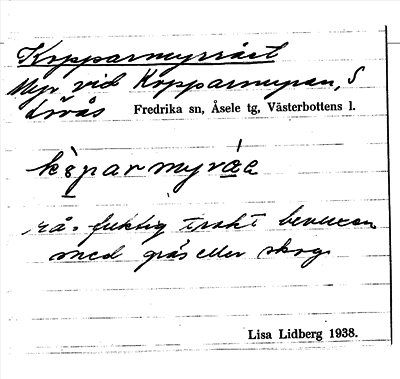 Kopparmyrrået
Myr vid Kopparmyran, S
Lövås Fredrika sn, Åsele tg, Västerbottens l.
kòparmyráe
rå = fuktig trakt bevuxen
med gräs eller skog.
Lisa Lidberg 1938.